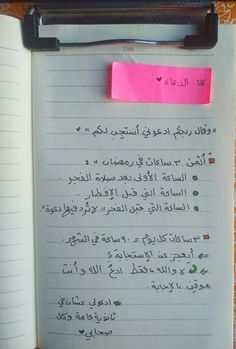 الدعاء ♥
"وقال ربكم ادعوني أستجب لكم"
أثمن ٣ ساعات في رمضان :
الساعة الأولى بعد صلاة الفجر.
الساعة التي قبل الإفطار.
الساعة التي قبل الفجر "لا تُرد فيها دعوة"
٣ ساعات كل يوم = ٩٠ ساعة في الشهر.
أتعجز عن الاستجابة ؟
لا والله، فقط ادعُ الله وأنت
موقن بالإجابة.
ادعولي عشان في
ثانوية عامة وكل
صحابي ♥